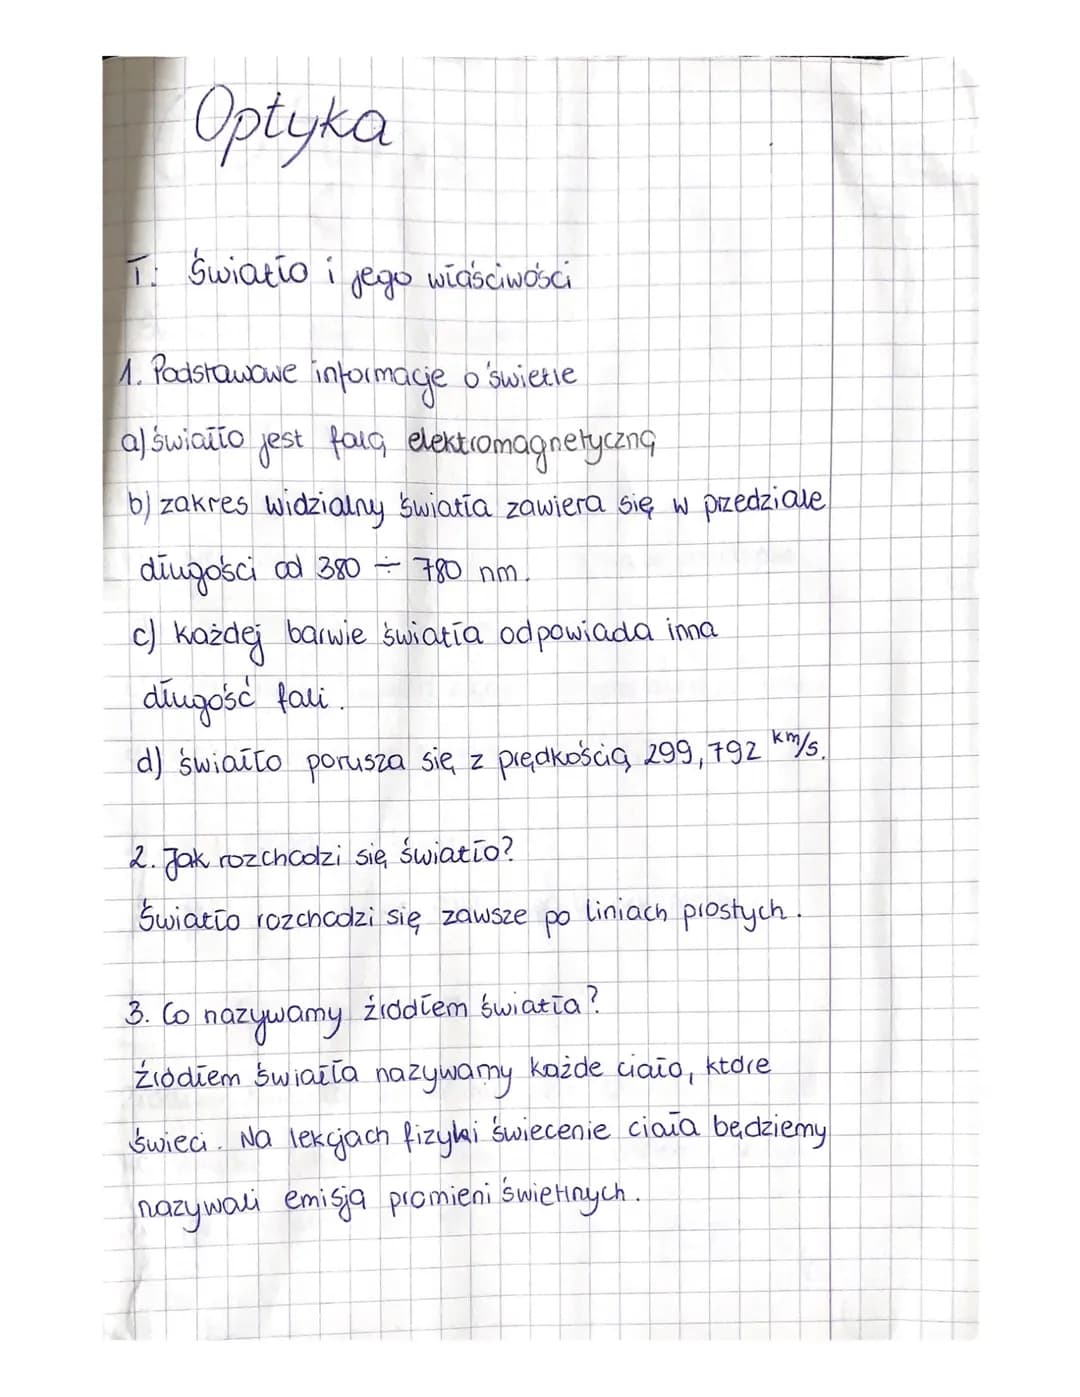 Optyka
T: Światło i jego właściwości
1. Podstawowe informacje o świetle
a) światło jest falą elektromagnetyczną
b) zakres widzialny światła zawiera się w przedziale
długości od 380 ÷ 780 nm.
c) każdej barwie światła odpowiada inna
długość fali.
d) światło porusza się z prędkością 299,792 km/s.
2. Jak rozchodzi się światło?
Światło rozchodzi się zawsze po liniach prostych.
3. Co nazywamy źródłem światła?
Źródłem światła nazywamy każde ciało, które
świeci. Na lekcjach fizyki świecenie ciała będziemy
nazywali emisją promieni świetlnych.